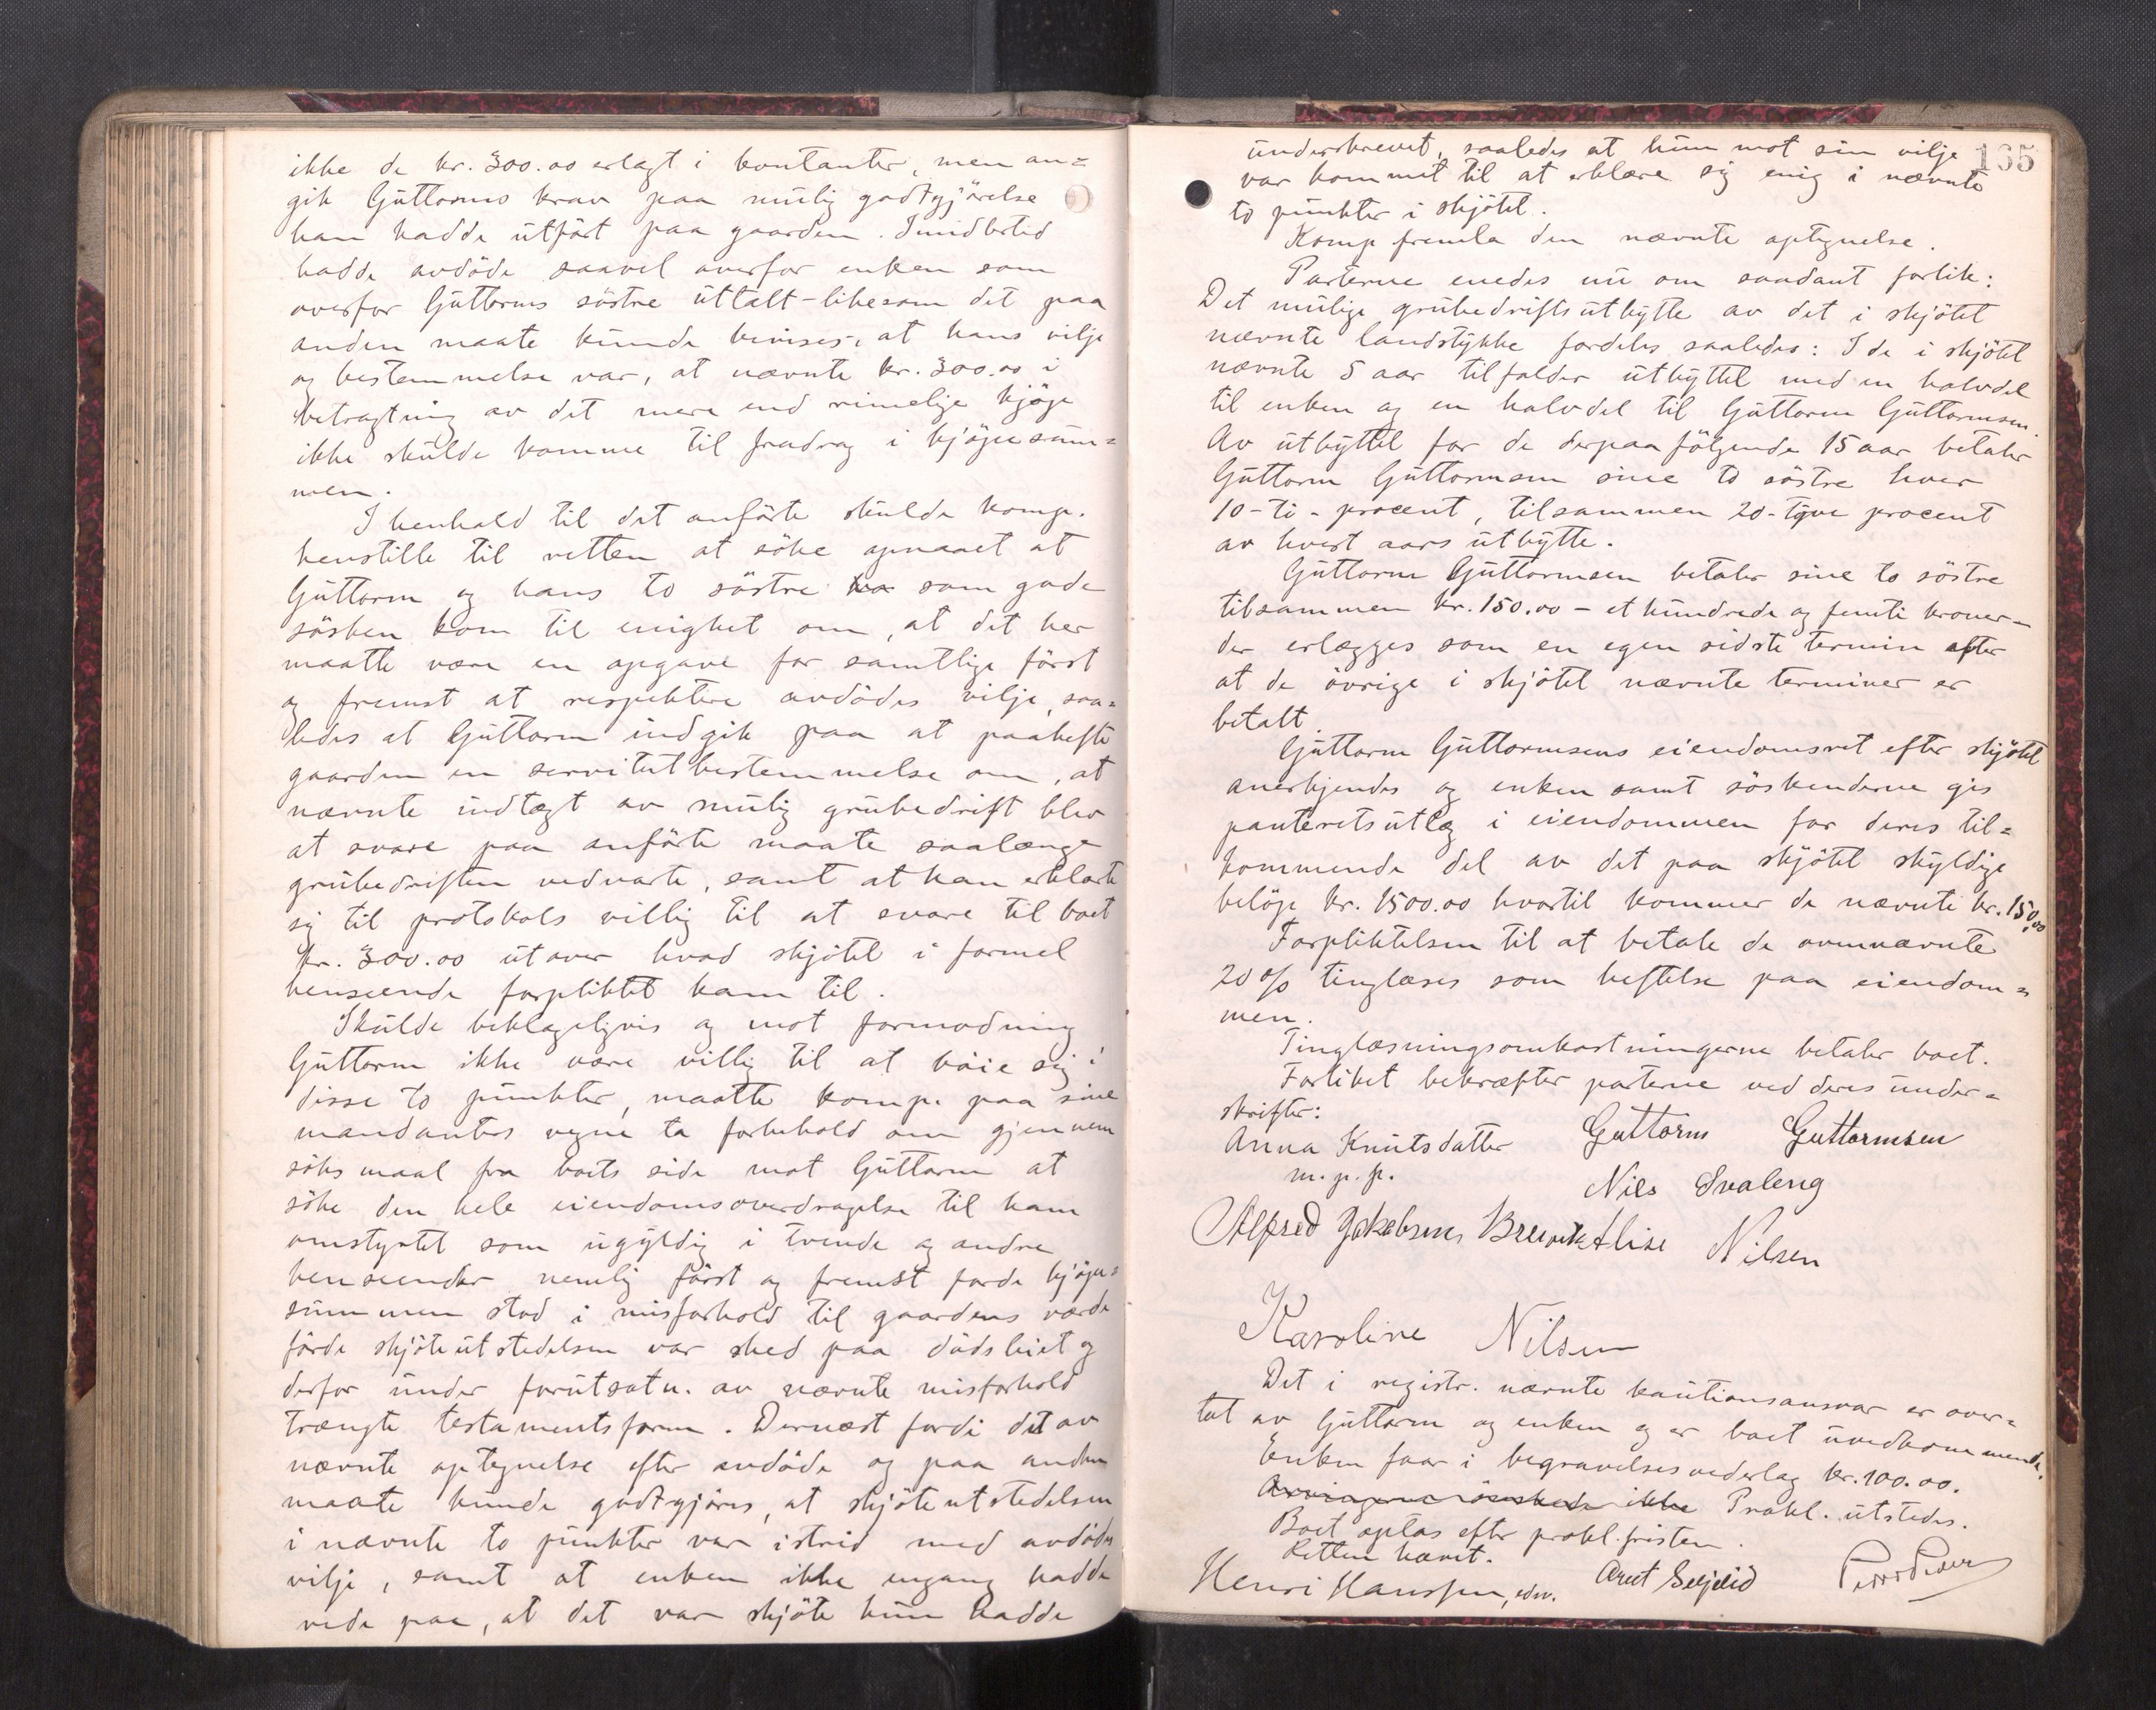 ikke de kr. 300.00 erlagt i kontanter, men an=
gik Guttorms krav paa mulig godtgjörelse
han hadde utfört paa gaarden. Imidlertid
hadde avdöde saavel overfor enken som
overfor Guttorms söstre uttalt - likesom det paa
anden maate kunde bevises, at hans vilje
og bestemmelse var, at nævnte kr. 300.00 i
betragtning av det mere end rimelige kjöp
ikke skulde komme til fradrag i kjöpesum=
men.
I henhold til det anförte skulde komp.
henstille til retten at söke opnaaet at
Guttorm og hans to söstre som gode
sösken kom til enighet om, at det her
maatte være en opgave for samtlige först
og fremst at respektere avdödes vilje, saa=
ledes at Guttorm indgik paa at paahefte
gaarden en servitutbestemmelse om, at
nævnte indtægt av mulig grubedrift blev
at svare paa anförte maate saalænge
grubedriften vedvarte, samt at han erklærte
sig til protokols villig til at svare til boet
kr. 300.00 utover hvad skjötet i formel
henseende forpliktet ham til.
Skulde beklageligvis og mot formodning
Guttorm ikke være villig til at böie sig i
disse to punkter, maatte komp. paa sine
mandanters vegne ta forbehold om gjennem
söksmaal fra boets side mot Guttorm at
söke den hele eiendomsoverdragelse til ham
omstyrtet som ugyldig i tvende og andre
henseender nemlig först og fremst fordi kjöpe=
summen stod i misforhold til gaardens værdi
fördi skjöteutstedelsen var sked paa dödsleiet og
derfor under forutsætn. av nævnte misforhold
trængte testamentsform. Dernæst fordi det av
nævnte optegnelse efter avdöde og paa anden
maate kunde godtgjöres, at skjöteutstedelsen
i nævnte to punkter var i strid med avdödes
vilje, samt at enken ikke engang hadde
rede paa, at det var skjöte hun hadde
165
underskrevet, saaledes at hun mot sin vilje
var kommet til at erklære sig enig i nævnte
to punkter i skjötet.
Komp fremla den nævnte optegnelse.
Parterne enedes nu om saadant forlik:
Det mulige grubedriftsutbytte av det i skjötet
nævnte landstykke fordeles saaledes: I de i skjötet
nævnte 5 aar tilfalder utbyttet med en halvdel
til enken og en halvdel til Guttorm Guttormsen.
Av utbyttet for de derpaa fölgende 15 aar betaler
Guttorm Guttormsen sine to söstre hver
10 - ti - procent, tilsammen 20 - tyve procent
av hvert aars utbytte.
Guttorm Guttormsen betaler sine to söstre
tilsammen kr. 150.00 - et hundrede og femti kroner -
der erlægges som en egen sidste termin efter
at de övrige i skjötet nævnte terminer er
betalt.
Guttorm Guttormsens eiendomsret efter skjötet
anerkjendes og enken samt söskenderne gis
panteretsutlæg i eiendommen for deres til=
kommende del av det paa skjötet skyldige
belöp kr. 1500.00 hvortil kommer de nævnte kr. 150.00
Forpliktelsen til at betale de ovennævnte
20 % tinglæses som heftelse paa eiendom=
men.
Tinglæsningsomkostningerne betaler boet.
Forliket bekræfter parterne ved deres under=
skrifter:
Anna Knutsdatter Guttorm Guttormsen
m. p. p. Nils Svaleng
Alfred Jakobsen Alise Nilsen
Karoline Nilsen
Det i registr. nævnte kautionsansvar er over=
tat av Guttorm og enken og er boet uvedkommende.
Enken faar i begravelsesvederlag kr. 100.00.
Arvingerne önskede ikke Prokl. utstedes.
Boet optas efter prokl.fristen.
Retten hævet.
Henri Hanssen, edsv. Arnt Seljelid